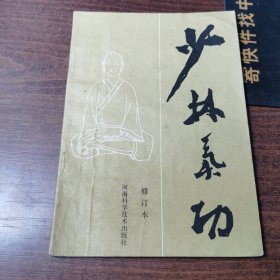 少林气功
修订本
河南科学技术出版社
寄快件找中